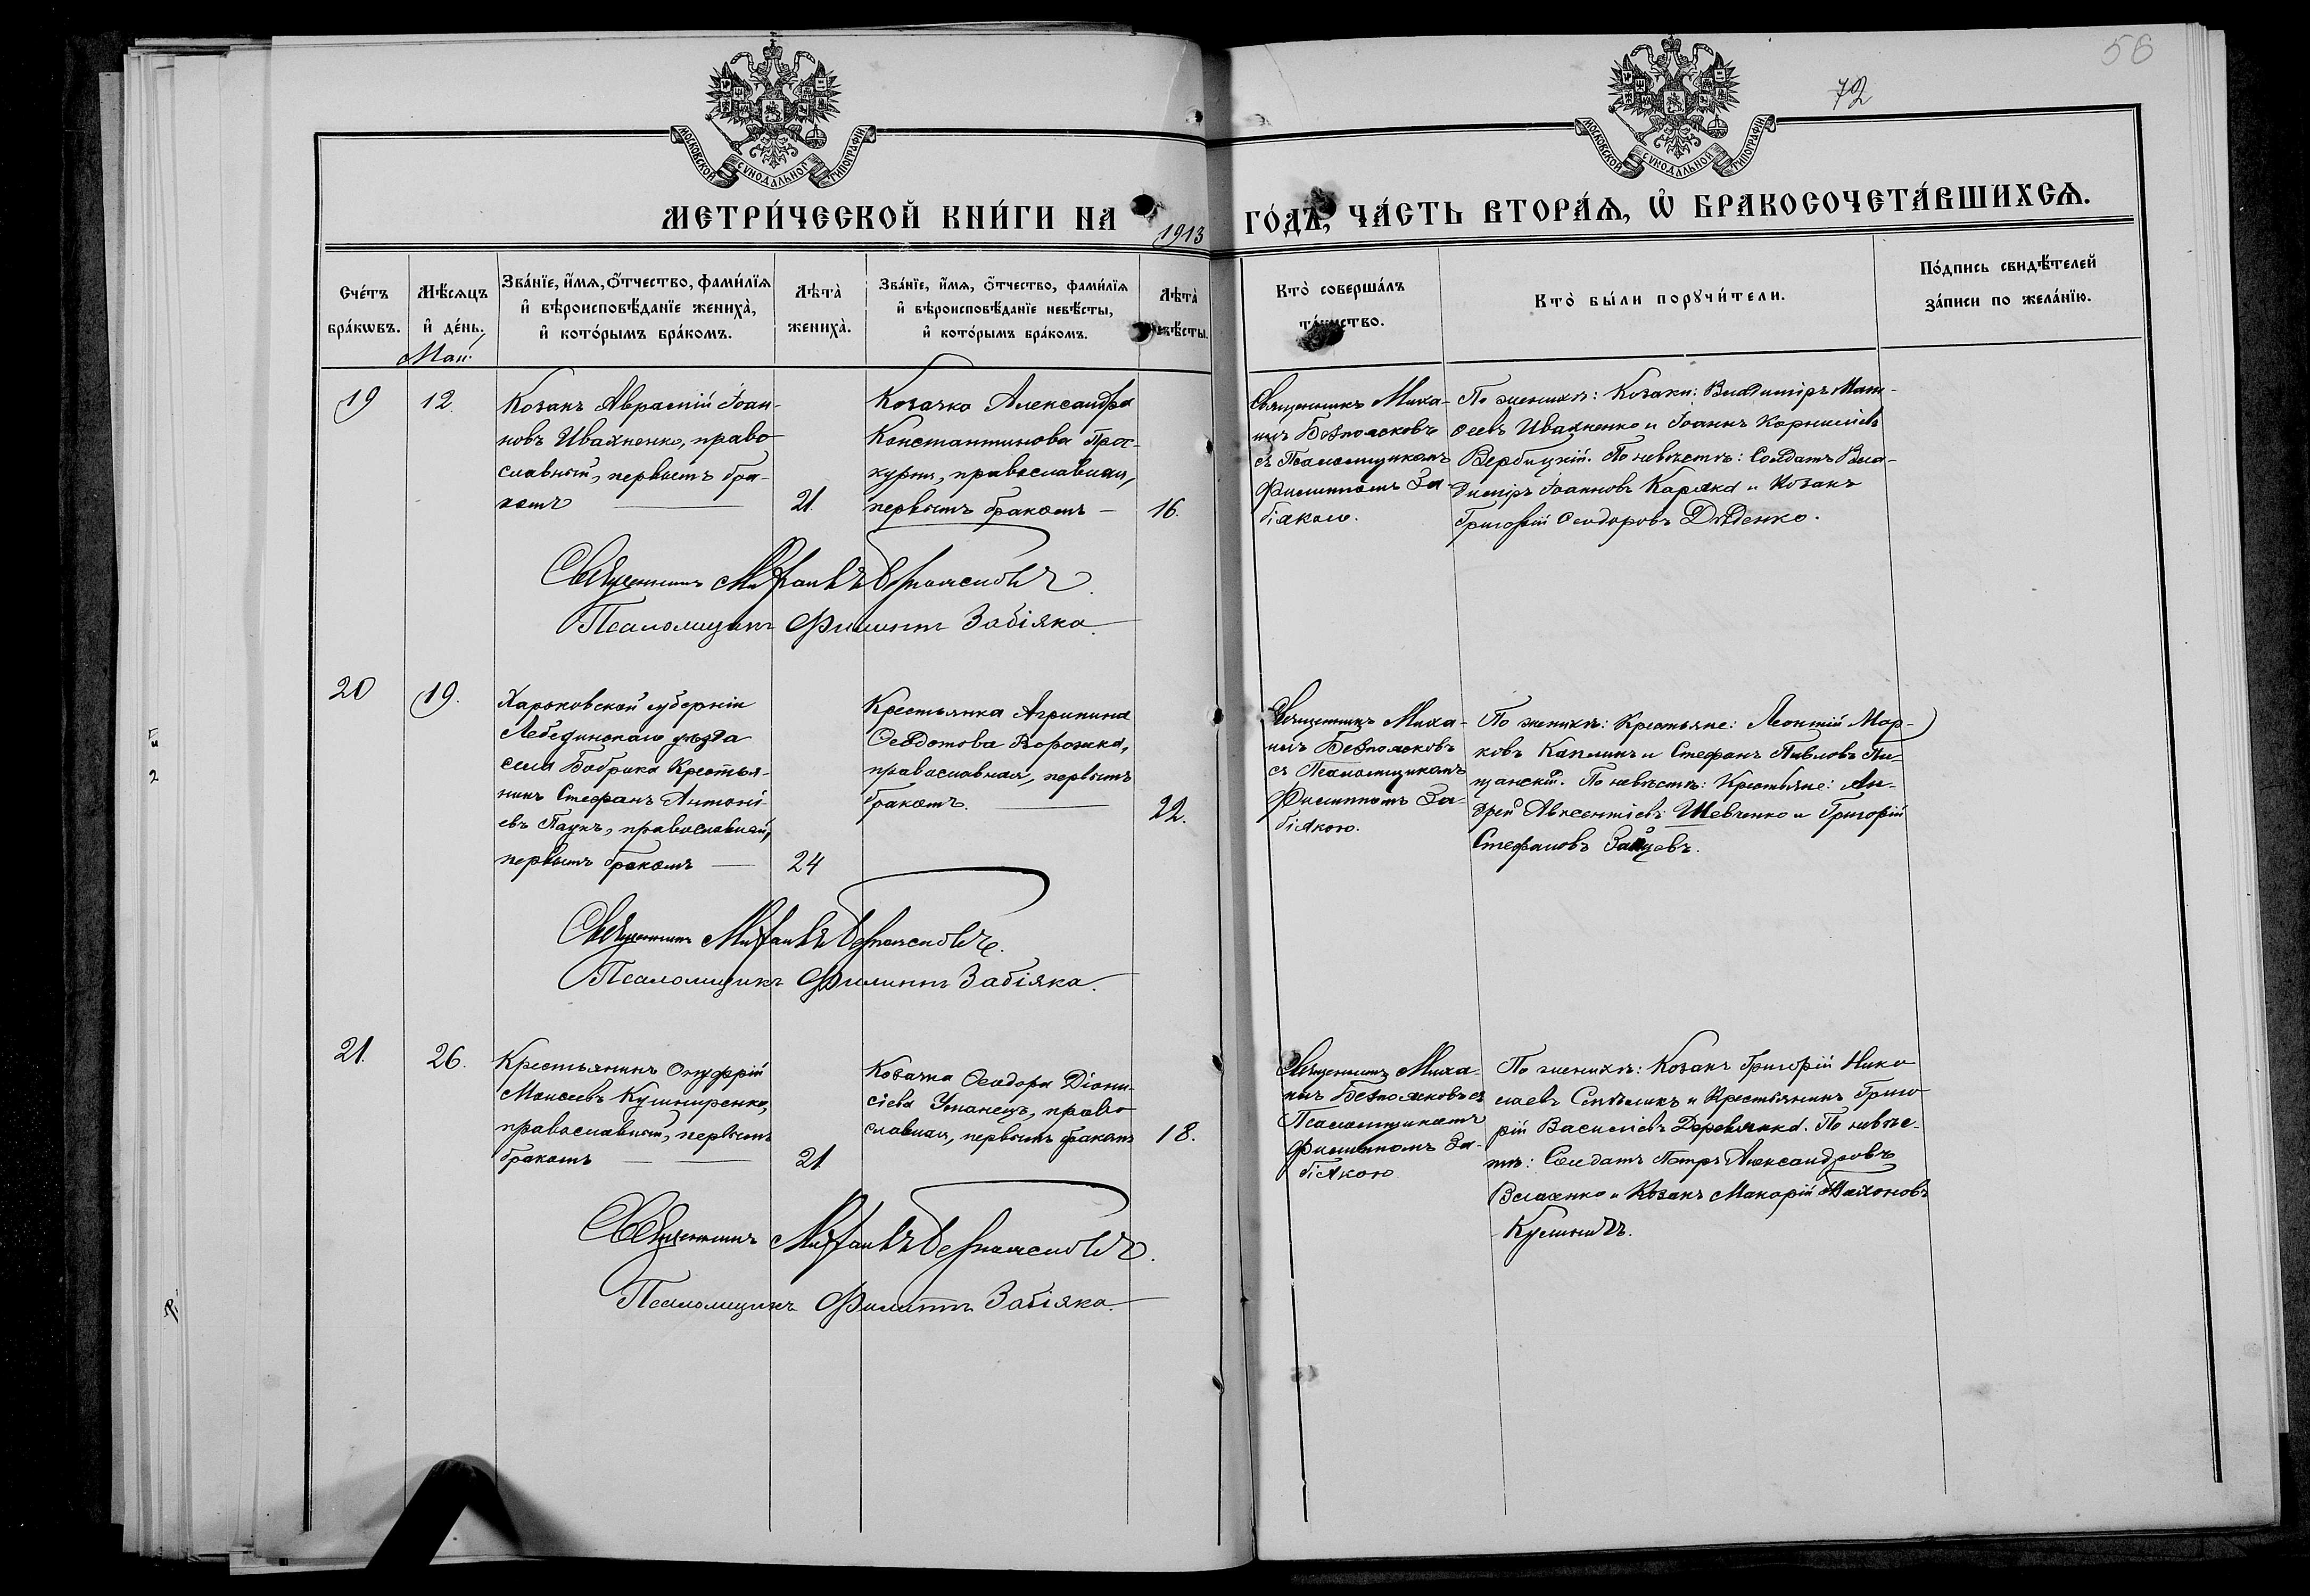 56
72
МОСКОВСКОЙ СѴНОДАЛЬНОЙ ТИПОГРАФІИ
МОСКОВСКОЙ СѴНОДАЛЬНОЙ ТИПОГРАФІИ
МЕТРИ́ЧЕСКОЙ КНИ́ГИ НА 1913 ГО́ДЪ, ЧА́СТЬ ВТОРА́Ѧ, Ѡ҆ БРАКОСОЧЕТА́ВШИХСѦ.
Сче́тъ
бра́кѡвъ.
Мѣ́сѧцъ
и҆ де́нь.
Май.
Зва́нїе, и҆́мѧ, ѻ҆́тчество, фами́лїѧ
и҆ вѣроисповѣ́данїе жениха̀,
и҆ кото́рымъ бра́комъ.
Лѣ́та̀
жениха̀.
Зва́нїе, и҆́мѧ, ѻ҆́тчество, фами́лїѧ
и҆ вѣроисповѣ́данїе невѣ́сты,
и҆ кото́рымъ бра́комъ.
Лѣ́та̀
невѣ́сты.
Кто̀ соверша́лъ
та́инство.
Кто̀ бы́ли порꙋчи́тели.
По́дпись свидѣ́телей
за́писи по жела́нїю.
19
12.
Козакъ Аврамій Іоан-
новъ Ивахненко, право-
славный, первымъ бра-
комъ
21.
Козачка Александра
Константинова Прос-
курня, православная,
первымъ бракомъ
16.
Священникъ Миха-
илъ Безпоясковъ
съ Псаломщикомъ
Филиппомъ За-
біякою.
По женихѣ: Козаки: Владиміръ Мат-
ѳеевъ Ивахненко и Іоаннъ Корниліевъ
Вербицкій. По невѣстѣ: Солдатъ Вла-
диміръ Іоанновъ Каряка и Козакъ
Григорій Ѳеодоровъ Дѣденко.
Священникъ Михаилъ Безпоясковъ.
Псаломщикъ Филиппъ Забіяка.
20
19.
Харьковской губерніи
Лебединскаго уѣзда
села Бобрика Крестья-
нинъ Стефанъ Антоні-
евъ Паукъ, православный,
первымъ бракомъ
24
Крестьянка Агрипина
Ѳеодотова Ворожка,
православная, первымъ
бракомъ.
22.
Священникъ Миха-
илъ Безпоясковъ
съ Псаломщикомъ
Филиппомъ За-
біякою.
По женихѣ: Крестьяне: Леонтій Мар-
ковъ Каплинъ и Стефанъ Павловъ Пи-
щанскій. По невѣстѣ: Крестьяне: Ан-
дрей Авксентіевъ Шевченко и Григорій
Стефановъ Зайцевъ.
Священникъ Михаилъ Безпоясковъ.
Псаломщикъ Филиппъ Забіяка.
21.
26.
Крестьянинъ Онуфрій
Моисеевъ Кушниренко,
православный, первымъ
бракомъ
21
Козачка Ѳеодора Діони-
сіева Уманецъ, право-
славная, первымъ бракомъ
18.
Священникъ Миха-
илъ Безпоясковъ съ
Псаломщикомъ
Филиппомъ За-
біякою
По женихѣ: Козакъ Григорій Нико
лаевъ и Крестьянинъ Григо
рій Васильевъ Деревянка. По невѣс-
тѣ: Солдатъ Петръ Александровъ
Власенко и Козакъ Макарій
Священникъ Михаилъ Безпоясковъ.
Псаломщикъ Филиппъ Забіяка.